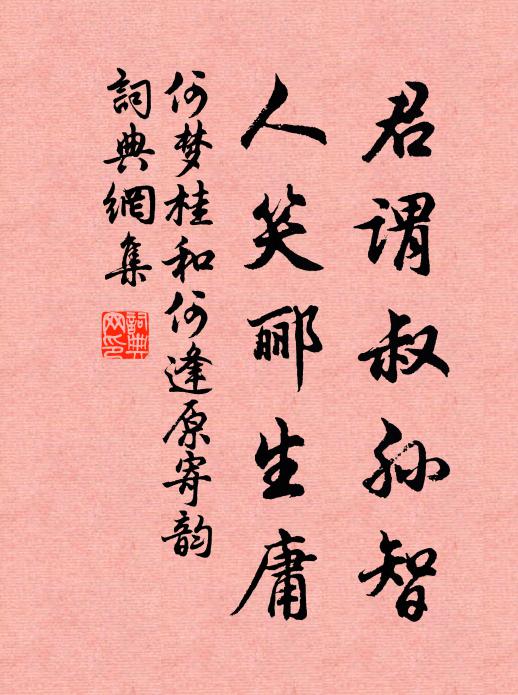 君谓叔孙智
人笑郦生庸
何梦桂和何逢原寄韵
词典網集
詞典网印